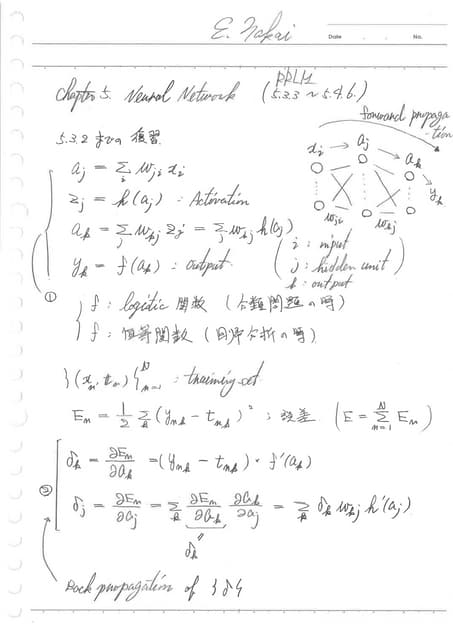 E. Nakai
Date
No.
Chapter 5. Neural Network (PRLM 5.3.3 ~ 5.4.6.)
forward propagation
5.3.2 までの復習
a_j = Σ_i w_ji x_i
z_j = h(a_j) : Activation
a_k = Σ_j w_kj z_j = Σ_j w_kj h(a_j)
y_k = f(a_k) : output
x_i → a_j → a_k → y_k
w_ji w_kj
( i : input
j : hidden unit
k : output
①
f : logistic 関数 (分類問題の時)
f : 恒等関数 (回帰分析の時)
{(x_n, t_n)}_{n=1}^N : training set
E_n = 1/2 Σ_k (y_nk - t_nk)² : 誤差 (E = Σ_{n=1}^N E_n)
②
δ_k = ∂E_n/∂a_k = (y_nk - t_nk) · f'(a_k)
δ_j = ∂E_n/∂a_j = Σ_k ∂E_n/∂a_k ∂a_k/∂a_j = Σ_k δ_k w_kj h'(a_j)
δ_k
Back propagation of {δ}